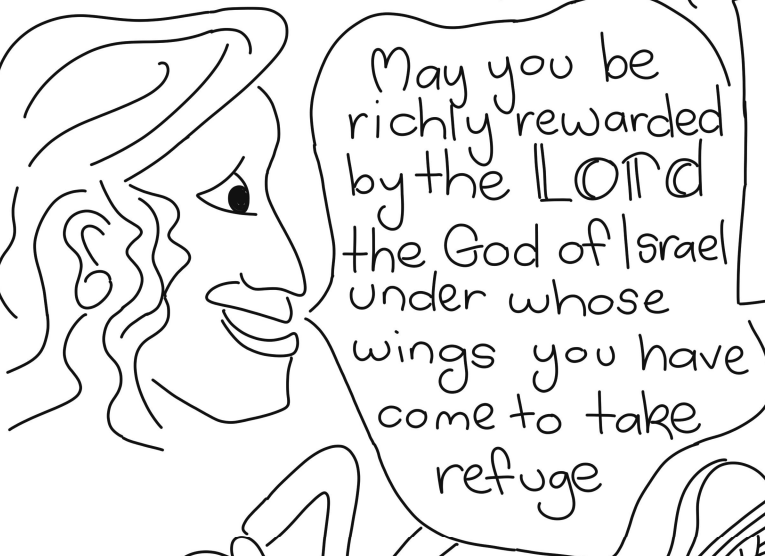 May you be
richly rewarded
by the LORD
the God of Israel
under whose
wings you have
come to take
refuge